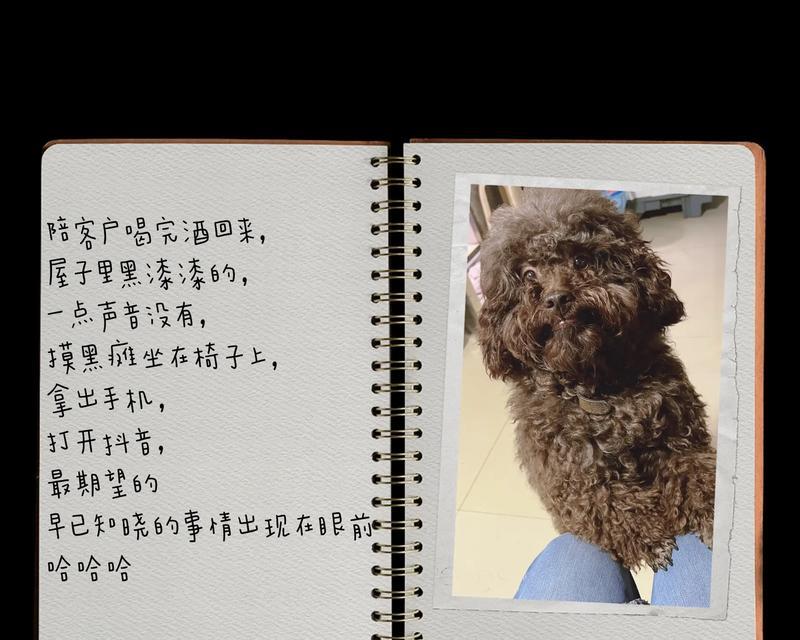 陪客户喝完酒回来，
屋子里黑漆漆的，
一点声音没有，
摸黑瘫坐在椅子上，
拿出手机，
打开抖音，
最期望的
早已知晓的事情出现在眼前
哈哈哈